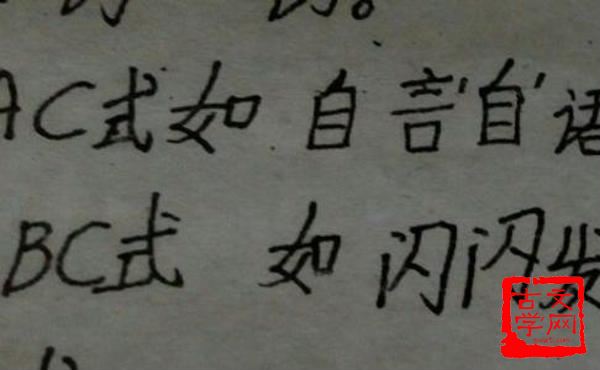 AC式如 自言自语
BC式 如 闪闪发
古文
学网